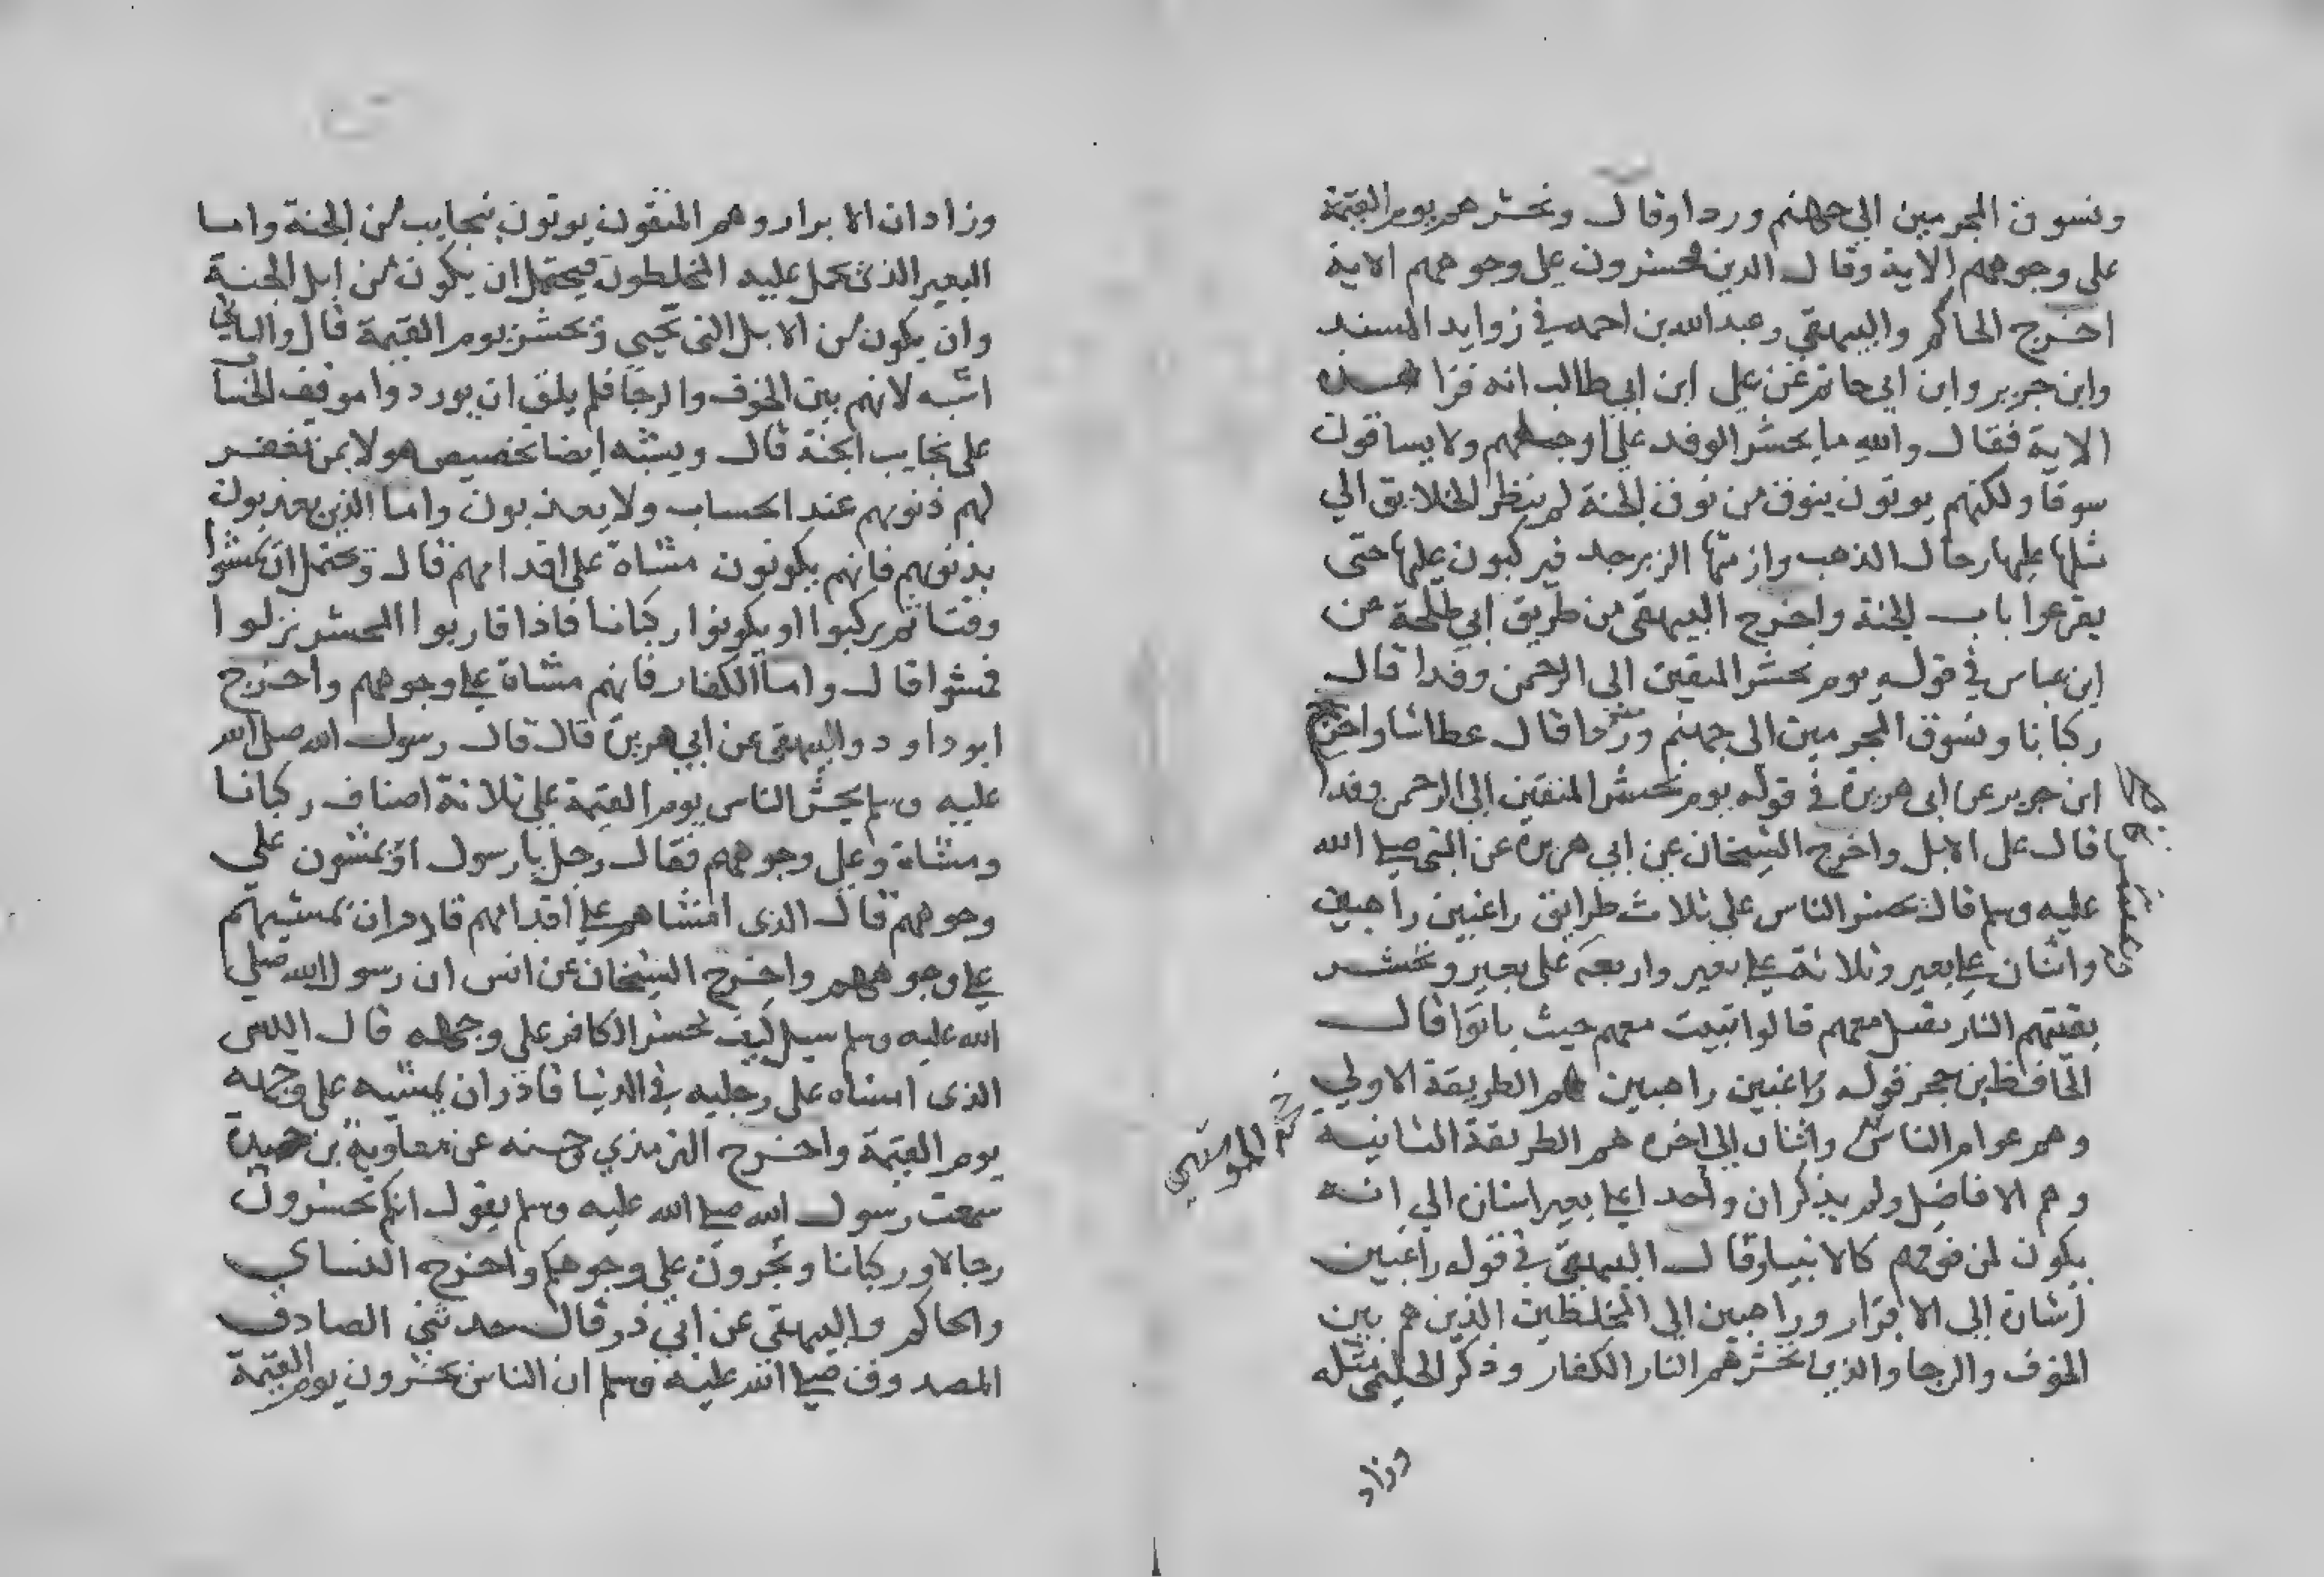 ونسوق المجرمين الي جهنم وردا وقال ونحشرهم يوم القيمة
على وجوههم الاية وقال الذين يحشرون على وجوههم الاية
اخرج الحاكم والبيهقي وعبد الله بن احمد في زوايد المسند
وابن جرير وابن ابي حاتم عن علي ابن ابي طالب انه قرا هذه
الاية فقال والله ما يحشر الوفد على ارجلهم ولا يساقون
سوقا ولكنهم يوتون بنوق من نوق الجنة لم ينظر الخلايق الي
مثلها عليها رحال الذهب وازمتها الزبرجد فيركبون عليها حتى
يقرعوا باب الجنة واخرج البيهقي من طريق ابي طلحة عن
ابن عباس في قوله يوم نحشر المتقين الي الرحمن وفدا قال
ركبانا ونسوق المجرمين الى جهنم وردا قال عطاشا واخرج
ابن جرير عن ابى هريرة في قوله يوم نحشر المتقين الي الرحمن وفدا
قال على الابل واخرج الشيخان عن ابي هريرة عن النبي صلى الله
عليه وسلم قال يحشر الناس علي ثلاث طرايق راغبين راهبين
واثنان على بعير وثلاثة على بعير واربعة على بعير وتحشر
بقيتهم النار تقيل معهم قالوا تبيت معهم حيث باتوا قال
الحافظ بن حجر قوله راغبين راهبين هم الطريقة الاولي
وهم عوام الناس واثنان الي اخره هم الطريقة الثانية
وهم الافاضل ولم يذكر ان واحدا على بعير اشنان الي انه
يكون لمن فوقهم كالانبيا وقال البيهقي في قوله راغبين
اشارة الي الابرار وراهبين الي المخلطين الذين هم بين
الخوف والرجا والذين تحشرهم النار الكفار وذكر الحليمي مثله
وزاد
وزاد ان الابرار وهم المتقون يوتون بنجايب من الجنة واما
البعير الذى يحمل عليه المخلطون فيحتمل ان يكون من ابل الجنة
وان يكون من الابل التي تحيي وتحشر يوم القيمة قال والثاني
اشبه لانهم بين الخوف والرجا فلم يلق ان يوردوا موقف الحساب
على نجايب الجنة قال ويشبه ايضا تخصيص هولا بمن تغفر
لهم ذنوبهم عند الحساب ولا يعذبون واما الذين يعذبون
بذنوبهم فانهم يكونون مشاة على اقدامهم قال ويحتمل ان يمشوا
وقتا ثم يركبوا او يكونوا ركبانا فاذا قاربوا المحشر نزلوا
فمشوا قال واما الكفار فانهم مشاة على وجوههم واخرج
ابو داود والبيهقي عن ابي هريرة قال قال رسول الله صلى الله
عليه وسلم يحشر الناس يوم القيمة على ثلاثة اصناف ركبانا
ومشاة وعلى وجوههم فقال رجل يا رسول او يمشون على
وجوههم قال الذى امشاهم على اقدامهم قادر ان يمشيهم
على وجوههم واخرج الشيخان عن انس ان رسول الله صلي
الله عليه وسلم سيل كيف يحشر الكافر علي وجهه قال اليس
الذى امشاه على رجليه في الدنيا قادر ان يمشيه على وجهه
يوم القيمة واخرج الترمذي حسنه عن معاوية بن حيدة
سمعت رسول الله صلى الله عليه وسلم يقول انكم تحشرون
رجالا وركبانا وتجرون علي وجوهكم واخرج النساي
والحاكم والبيهقي عن ابي ذر قال حدثني الصادق
المصدوق صلى الله عليه وسلم ان الناس يحشرون يوم القيمة